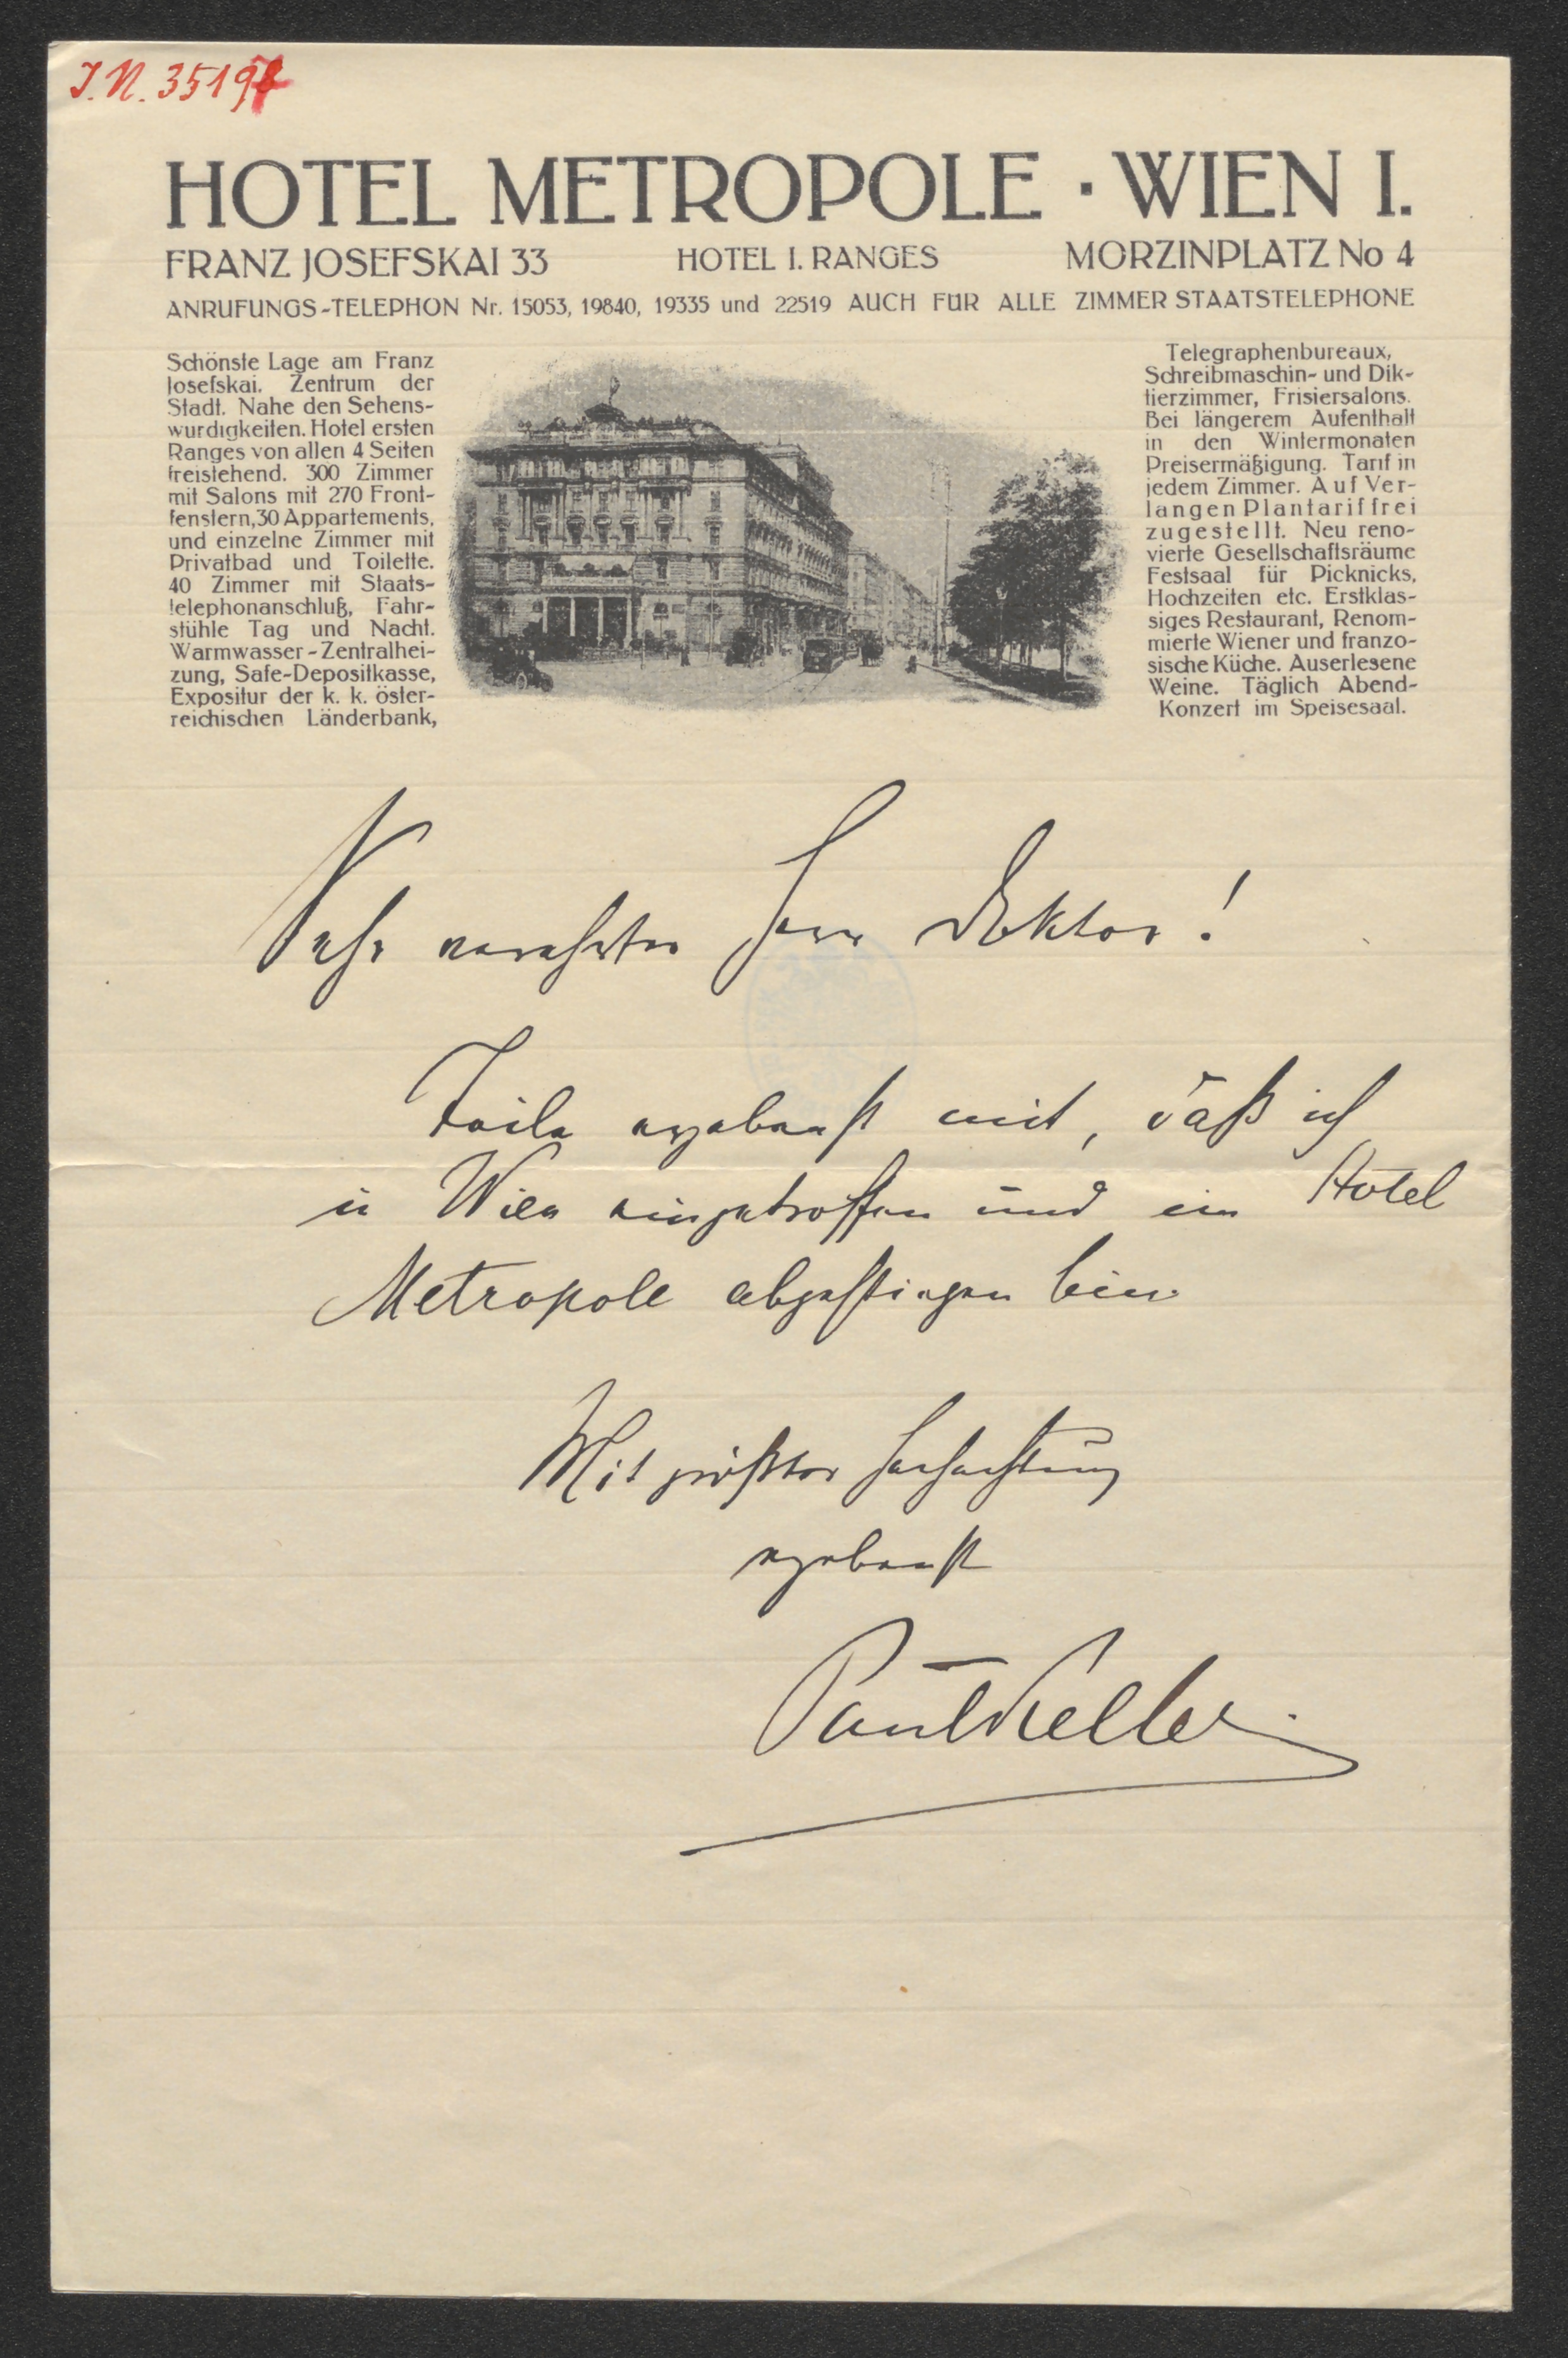 J.N. 35197
HOTEL METROPOLE · WIEN I.
FRANZ JOSEFSKAI 33 HOTEL I. RANGES MORZINPLATZ No 4
ANRUFUNGS-TELEPHON Nr. 15053, 19840, 19335 und 22519 AUCH FÜR ALLE ZIMMER STAATSTELEPHONE
Schönste Lage am Franz
Josefskai. Zentrum der
Stadt. Nahe den Sehens-
wurdigkeiten. Hotel ersten
Ranges von allen 4 Seiten
freistehend. 300 Zimmer
mit Salons mit 270 Front-
fenstern, 30 Appartements,
und einzelne Zimmer mit
Privatbad und Toilette.
40 Zimmer mit Staats-
telephonanschluß, Fahr-
stühle Tag und Nacht.
Warmwasser-Zentralhei-
zung, Safe-Depositkasse,
Expositur der k. k. öster-
reichischen Länderbank,
Telegraphenbureaux,
Schreibmaschin- und Dik-
tierzimmer, Frisiersalons.
Bei längerem Aufenthalt
in den Wintermonaten
Preisermäßigung. Tarif in
jedem Zimmer. Auf Ver-
langen Plantarif frei
zugestellt. Neu reno-
vierte Gesellschaftsräume
Festsaal für Picknicks,
Hochzeiten etc. Erstklas-
siges Restaurant, Renom-
mierte Wiener und franzo-
sische Küche. Auserlesene
Weine. Täglich Abend-
Konzert im Speisesaal.
Sehr verehrter Herr Doktor!
Teile ergebenst mit, daß ich
in Wien eingetroffen und im Hotel
Metropole abgestiegen bin.
Mit größter Hochachtung
ergebenst
Paul Keller.